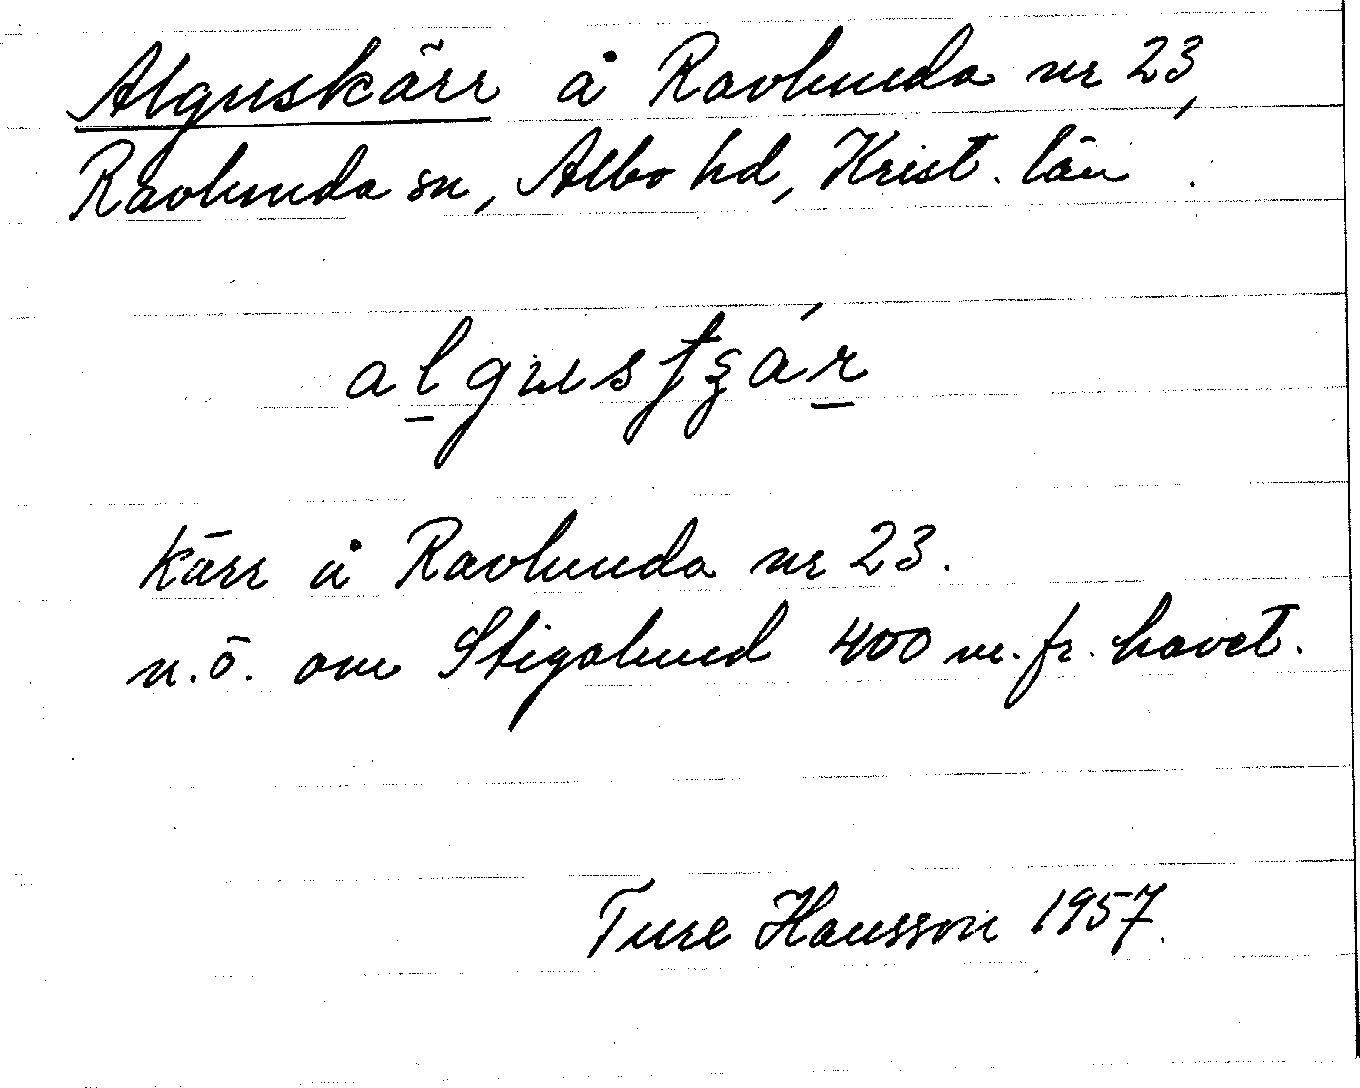 Alguskärr å Ravlunda nr 23,
Ravlunda sn, Albo hd, Krist. län.
kärr å Ravlunda nr 23.
n.ö. om Stigalund 400 m. fr. havet.
Ture Hansson 1957.